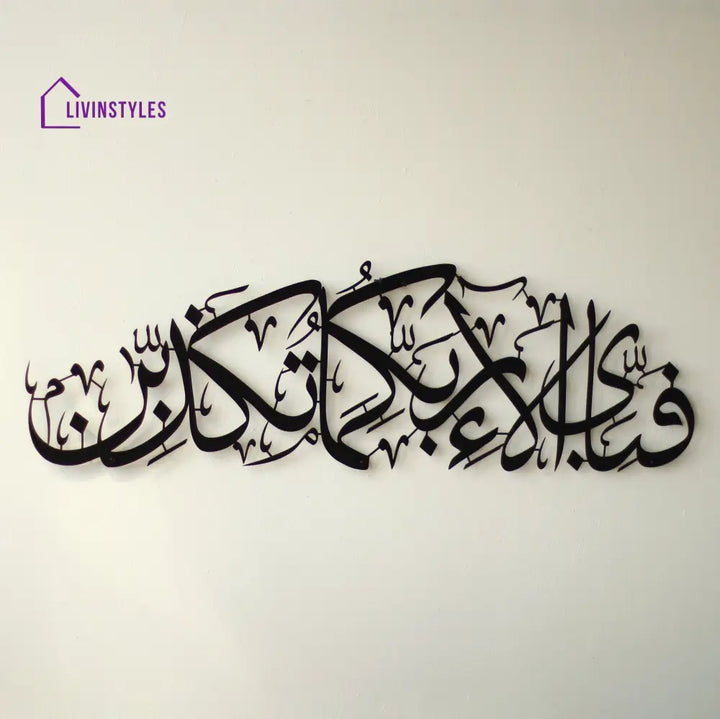 LIVINSTYLES
فَبِأَيِّ آلَاءِ رَبِّكُمَا تُكَذِّبَانِ